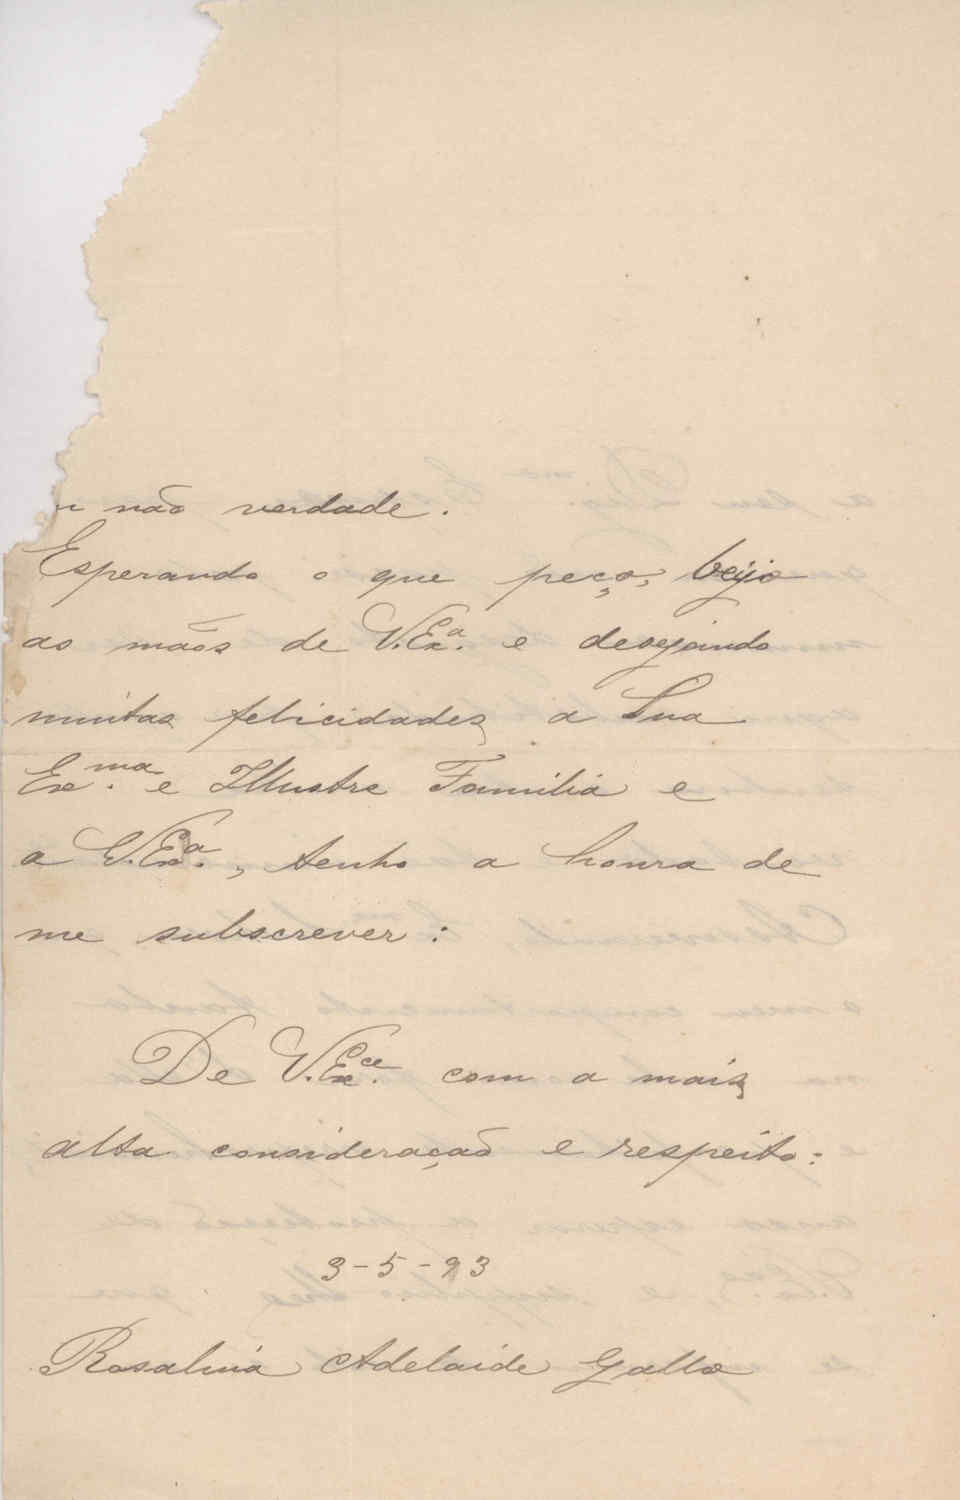 não verdade.
Esperando o que peço, beijo
as mãos de V.Exª. e desejando
muitas felicidades a Sua
Exma. e Illustre Familia e
a V.Exª., tenho a honra de
me subscrever:
De V.Exce. com a mais
alta consideração e respeito:
3-5-93
Rosalina Adelaide Gallo